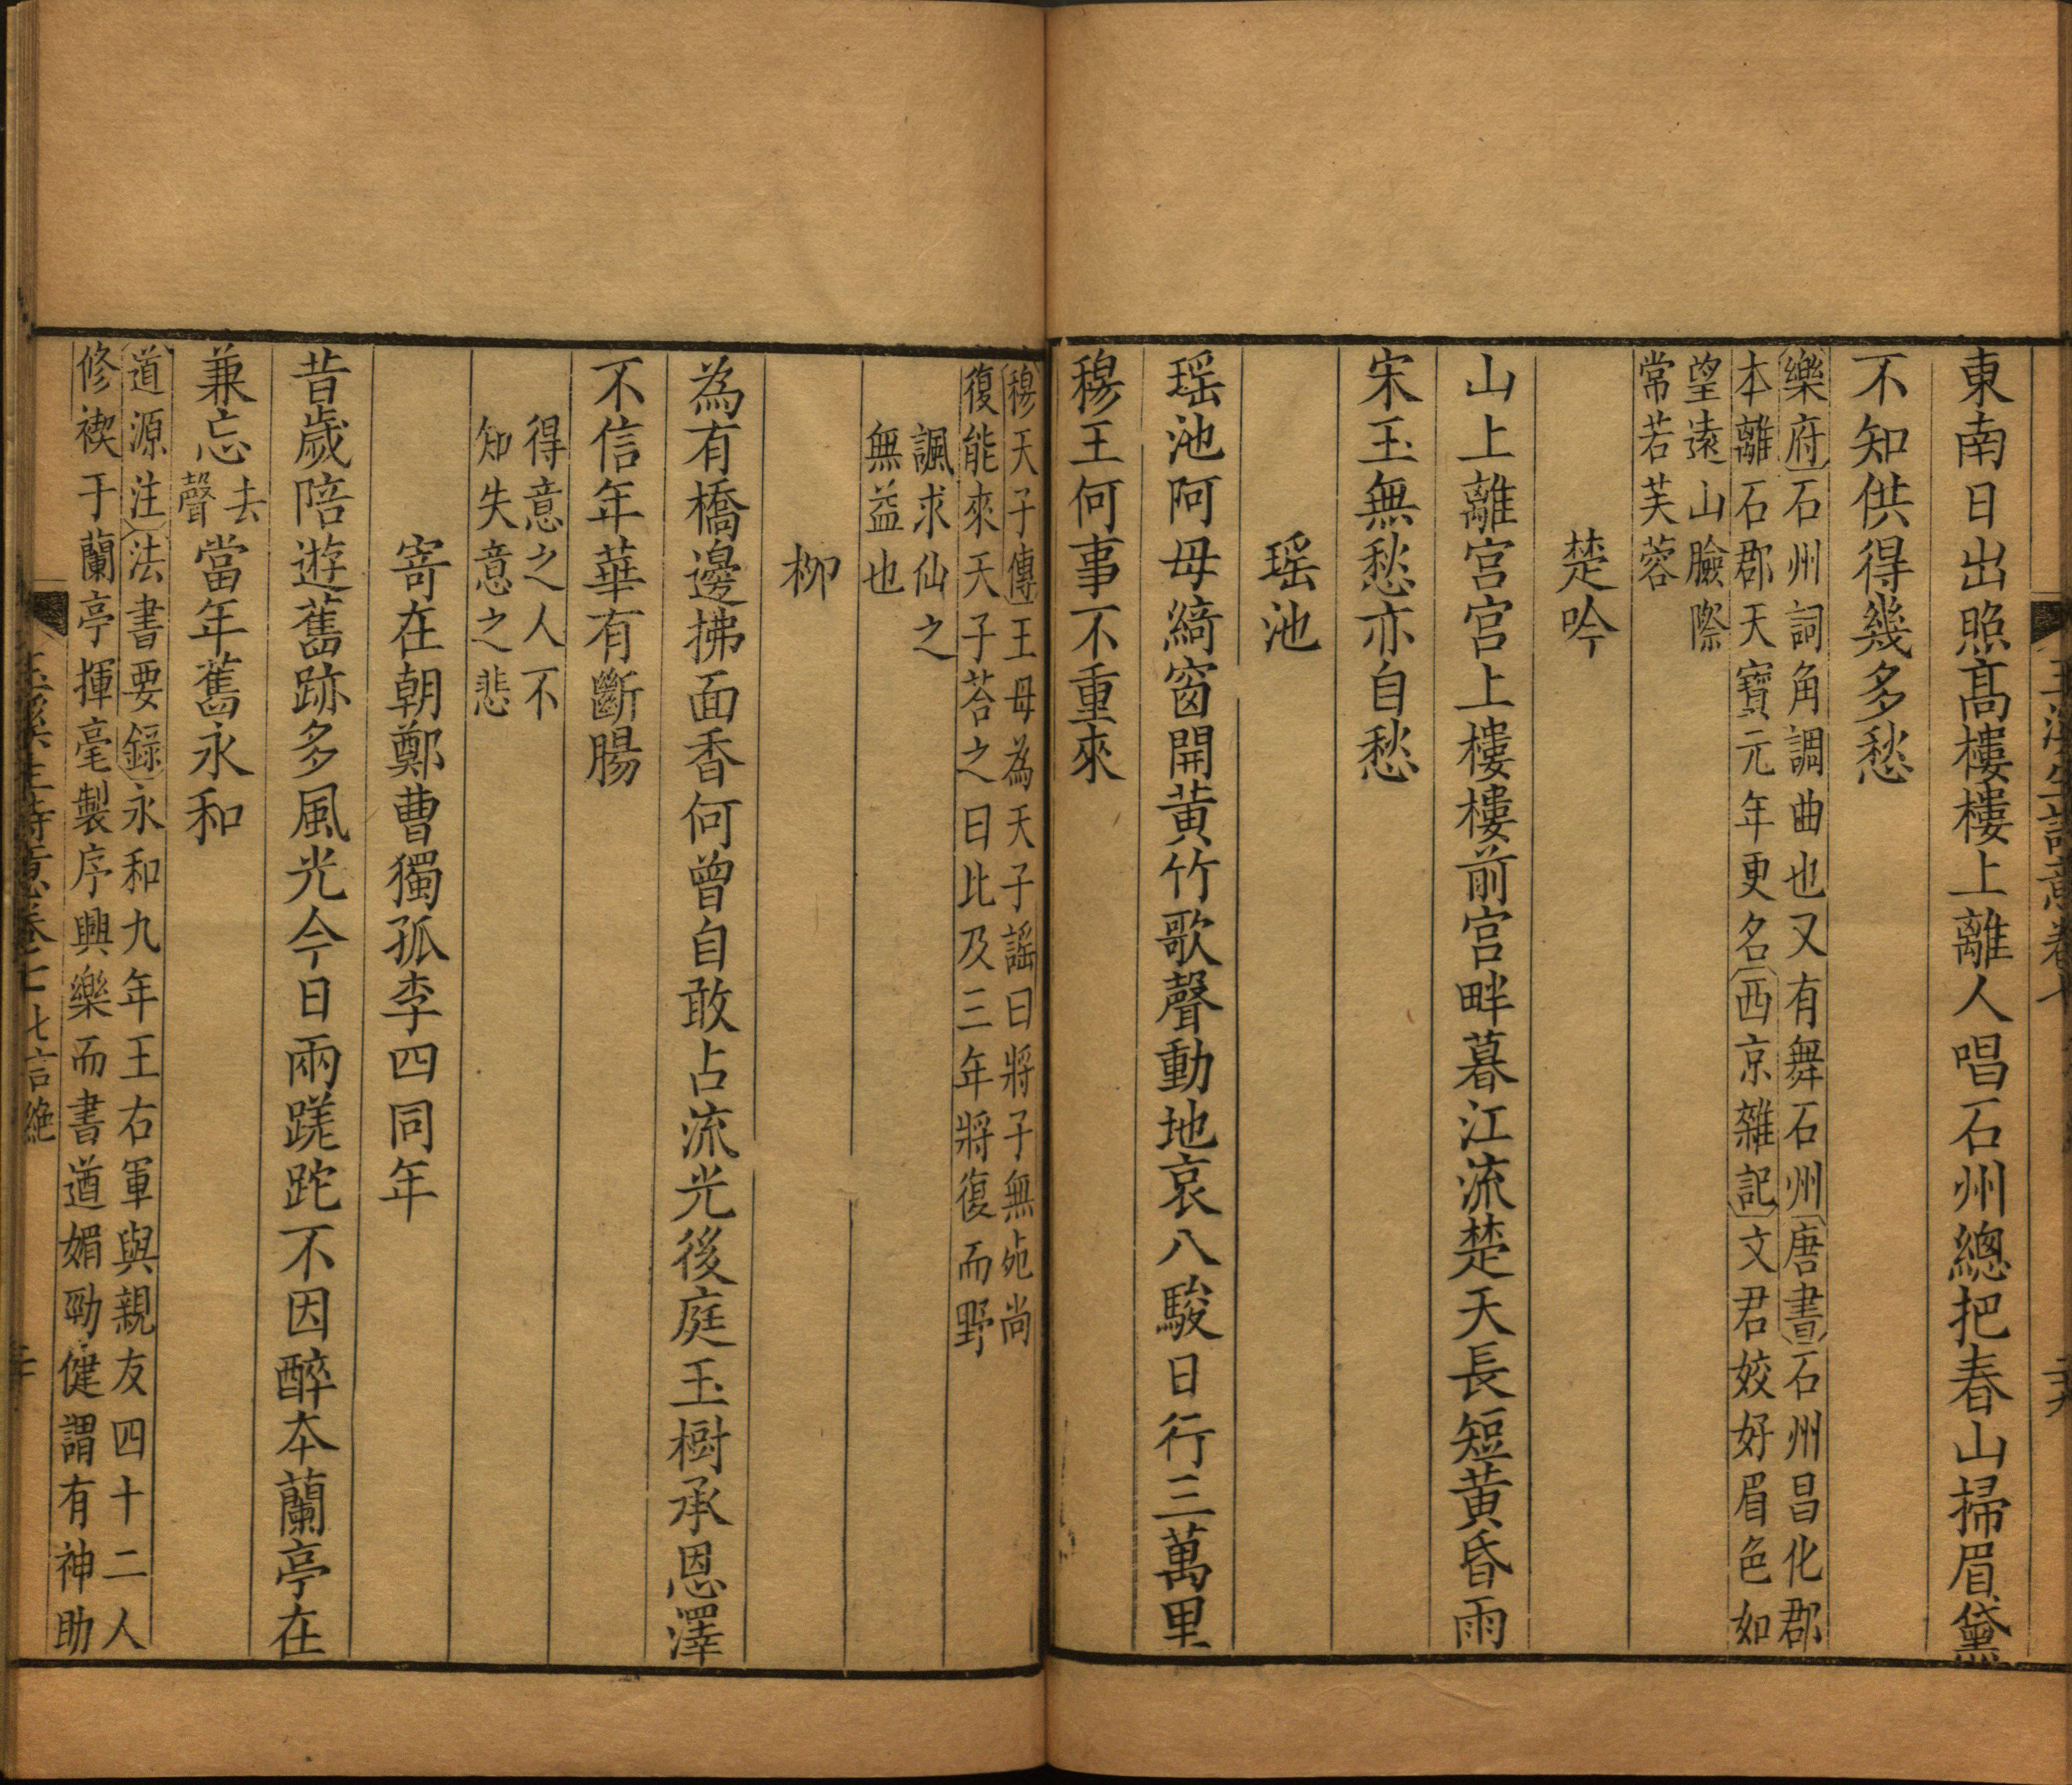 東南日出照髙樓樓上離人唱石州總把春山掃眉黛
不知供得幾多愁
樂府石州詞角調曲也又有舞石州唐書石州昌化郡
本離石郡天寶元年更名西京雜記文君姣好眉色如
望遠山臉際
常若芙蓉
楚吟
山上離宮宮上樓樓前宮畔暮江流楚天長短黄昏雨
宋玉無愁亦自愁
瑶池
瑶池阿母綺窗開黄竹歌聲動地哀八駿日行三萬里
穆王何事不重來
穆天子傳王母為天子謡曰將子無死尚
復能來天子荅之曰比及三年將復而野
諷求仙之
無益也
柳
為有橋邊拂面香何曾自敢占流光後庭玉樹承恩澤
不信年華有斷腸
得意之人不
知失意之悲
寄在朝鄭曹獨孤李四同年
昔歲陪遊舊跡多風光今日兩蹉跎不因醉本蘭亭在
兼忘去聲當年舊永和
道源注法書要錄永和九年王右軍與親友四十二人
修禊于蘭亭揮毫製序興樂而書遒媚勁健謂有神助
玉溪生詩意卷七 七言絶